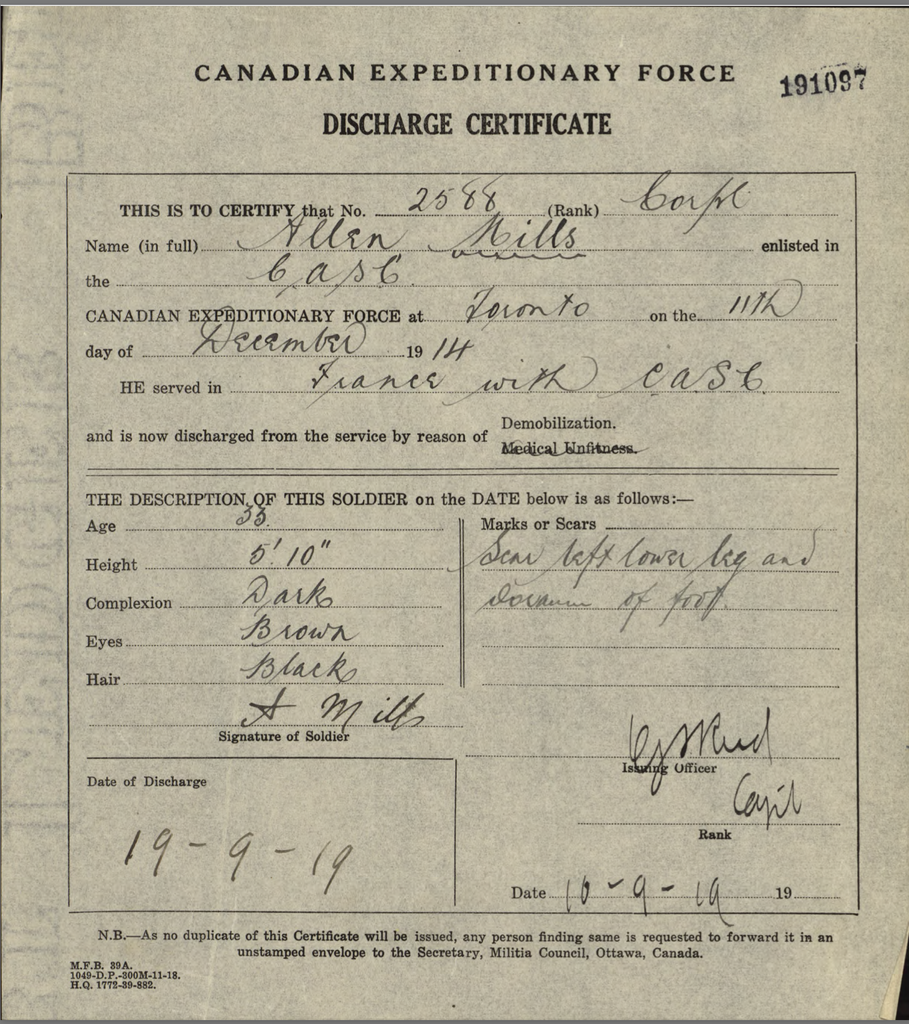 CANADIAN EXPEDITIONARY FORCE
191097
DISCHARGE CERTIFICATE
THIS IS TO CERTIFY that No. 2588 (Rank) Corpl
Name (in full) Allen Mills enlisted in
the C A S C
CANADIAN EXPEDITIONARY FORCE at Toronto on the 11th
day of December 19 14
HE served in France with C A S C
and is now discharged from the service by reason of Demobilization.
Medical Unfitness.
THE DESCRIPTION OF THIS SOLDIER on the DATE below is as follows:—
Age 33.
Height 5' 10"
Complexion Dark
Eyes Brown
Hair Black
A Mills
Signature of Soldier
Marks or Scars
Scar left lower leg and
of foot.
Issuing Officer
Capt
Rank
Date of Discharge
19 - 9 - 19
Date - 9 - 19 19
N.B.—As no duplicate of this Certificate will be issued, any person finding same is requested to forward it in an
unstamped envelope to the Secretary, Militia Council, Ottawa, Canada.
M.F.B. 39A.
1049-D.P.-300M-11-18.
H.Q. 1772-39-882.